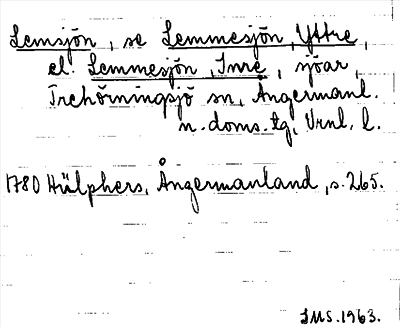 Lemsjön, se Lemmesjön, Yttre,
el. Lemmesjön, Inre, sjöar,
Trehörningsjö sn, Ångermanl.
n. doms. tg, Vrnl. l.
1780 Hülphers, Ångermanland, s. 265.
IMS. 1963.